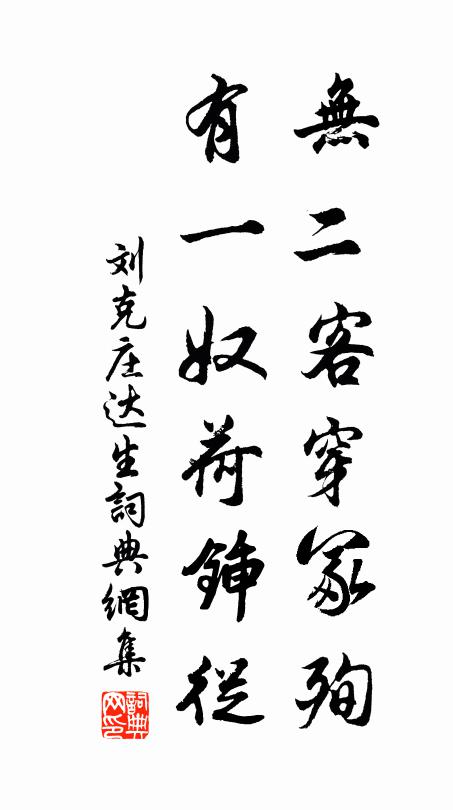 無二客穿冢殉
有一奴荷鍤從
刘克庄达生詞典網集
詞典网印